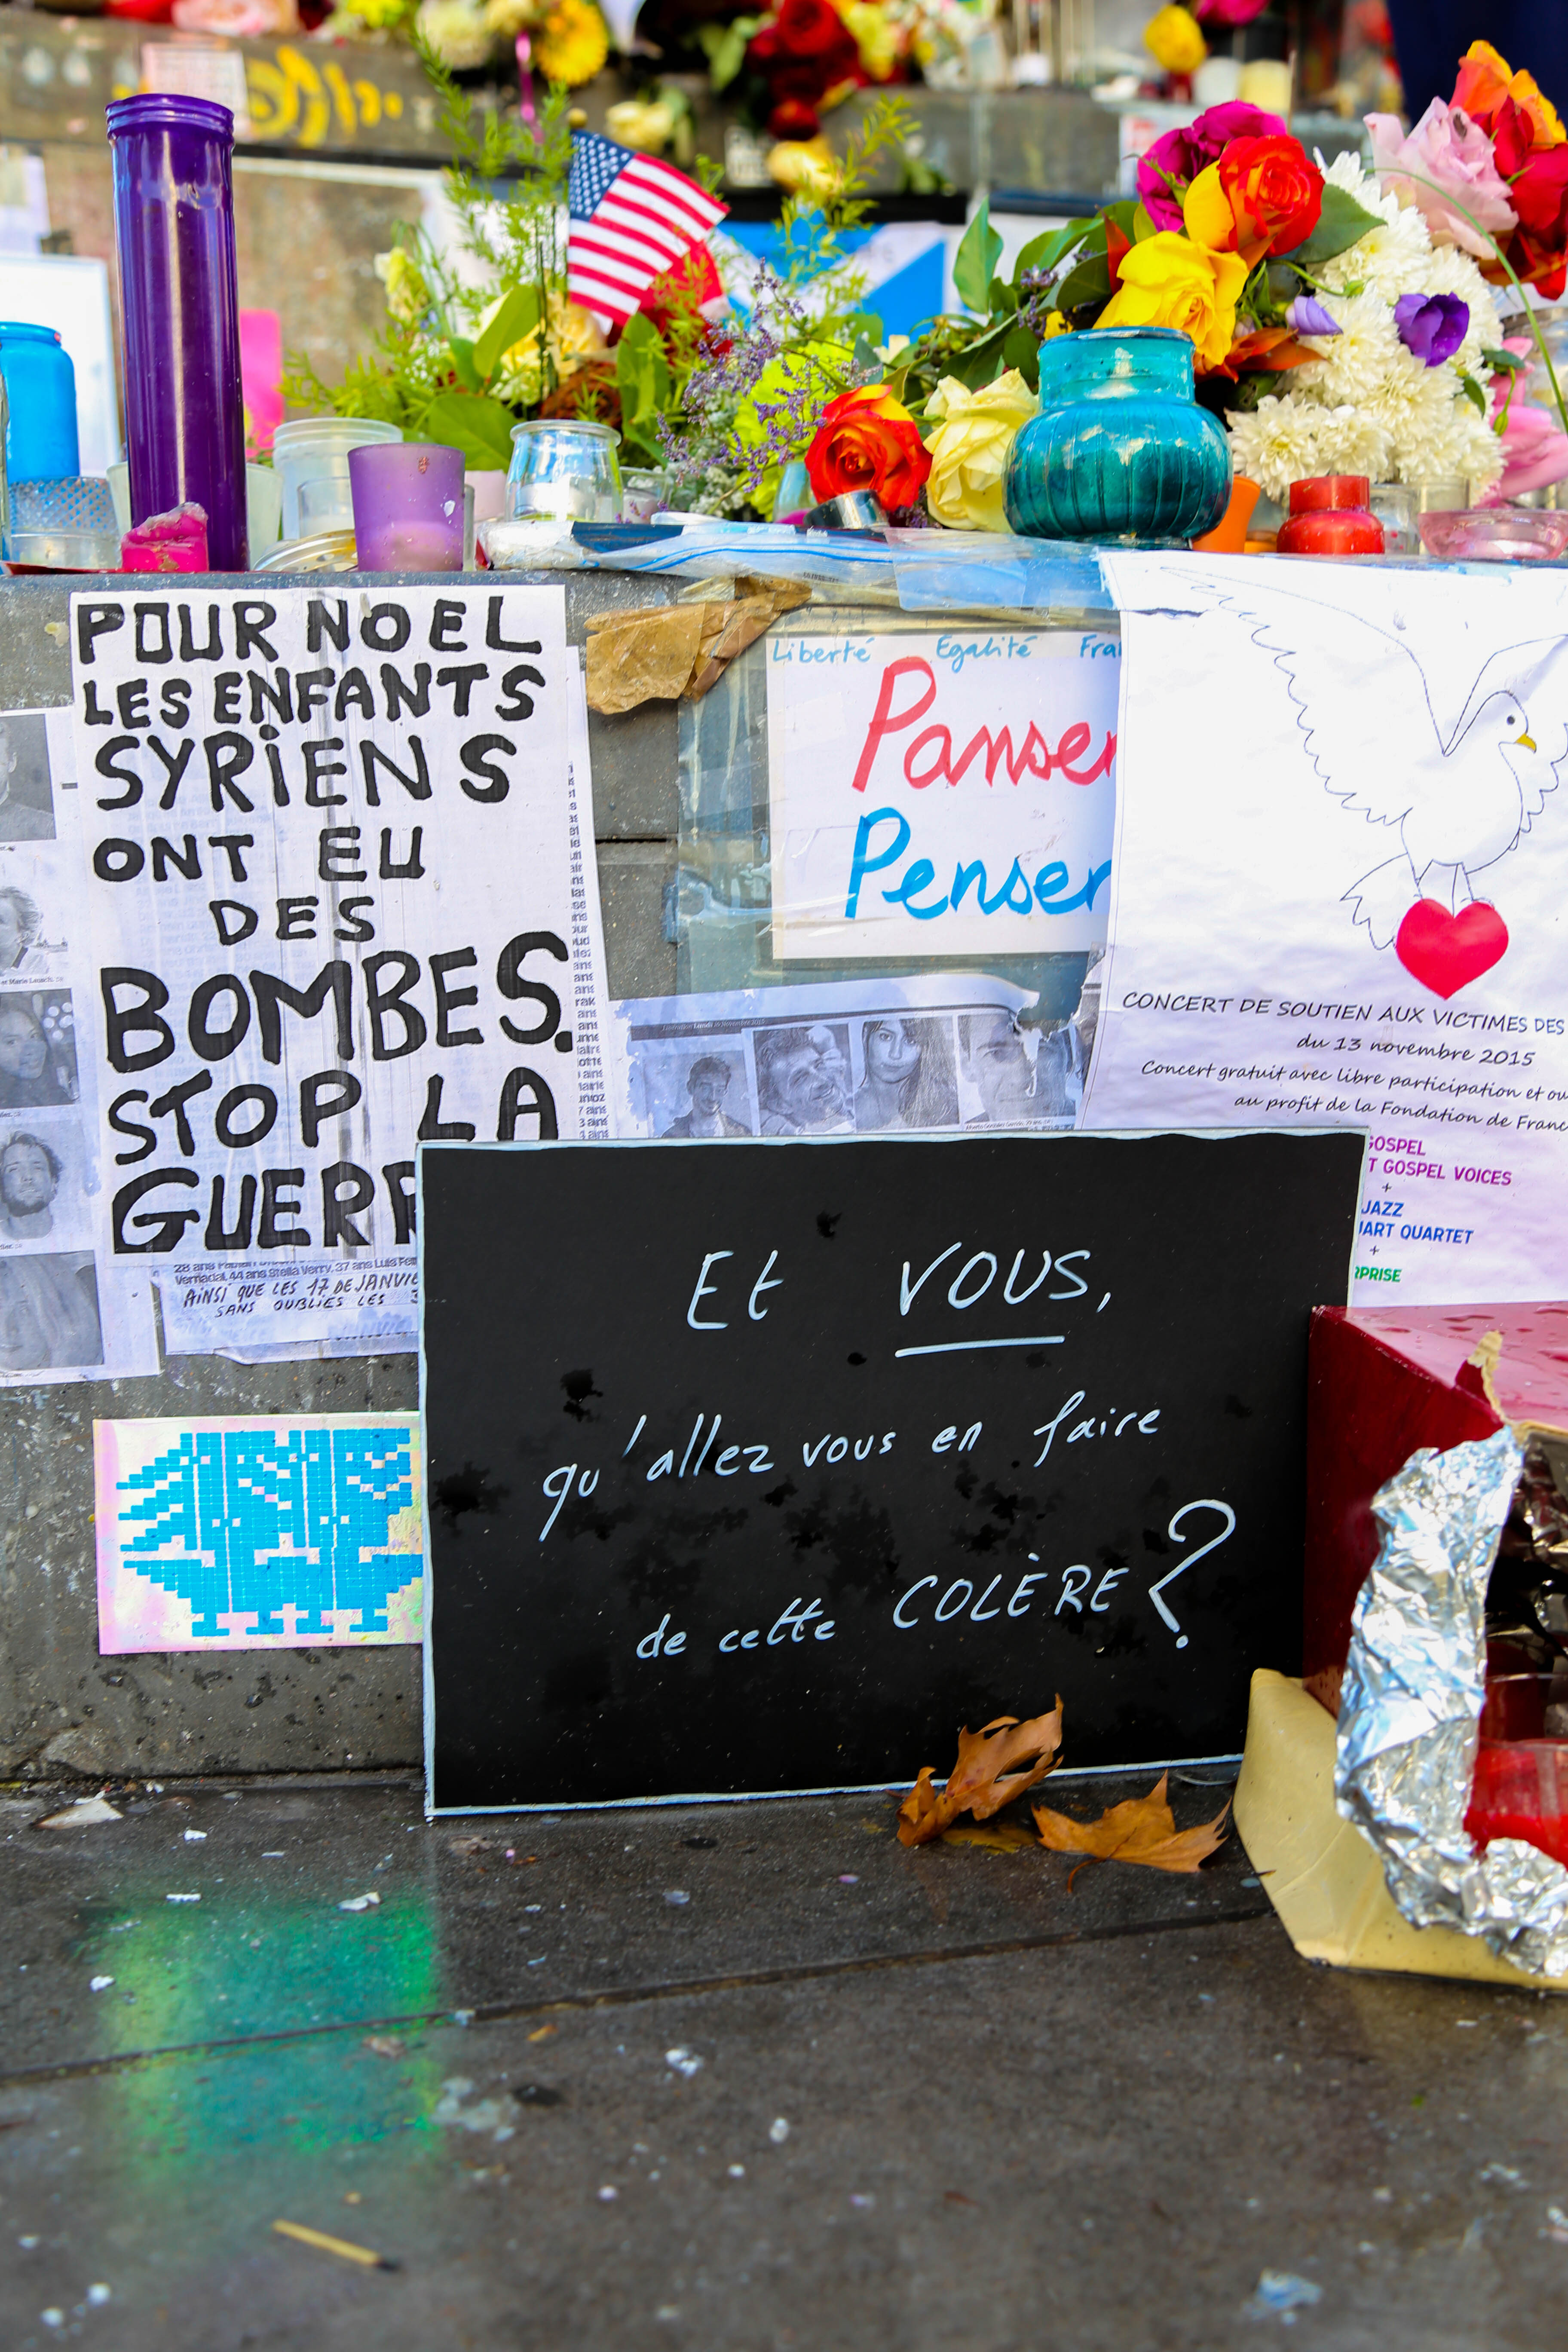 POUR NOEL
LES ENFANTS
SYRiENS
ONT EU
DES
BOMBES.
STOP LA
GUERR
28 ans
Stella Verry, 37 ans
44 ans
AiNSi QUE LES 17 DE JANVIE
SANS OUBLIES LES
Liberté Egalité Fra
Panser
Penser
CONCERT DE SOUTIEN AUX VICTIMES DES
du 13 novembre 2015
Concert gratuit avec libre participation et ou
au profit de la Fondation de Franc
GOSPEL
T GOSPEL VOICES
+
JAZZ
ART QUARTET
+
RPRISE
Et VOUS,
qu'allez vous en faire
de cette COLÈRE ?